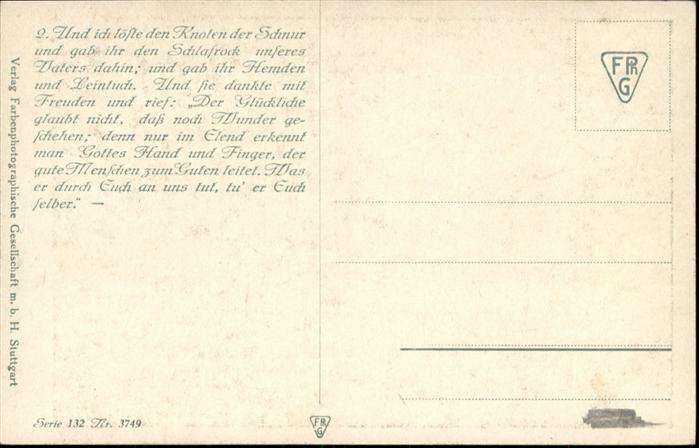 2. Und ich löſte den Knoten der Schnur
und gab ihr den Schlafrock unſeres
Vaters dahin; und gab ihr Hemden
und Leintuch. Und ſie dankte mit
Freuden und rief: „Der Glückliche
glaubt nicht, daß noch Wunder ge-
ſchehen; denn nur im Elend erkennt
man Gottes Hand und Finger, der
gute Menſchen zum Guten leitet. Was
er durch Euch an uns tut, tu' er Euch
ſelber.“ —
Verlag Farbenphotographische Gesellschaft m. b. H. Stuttgart
FPh
G
Serie 132 Nr. 3749
FPh
G